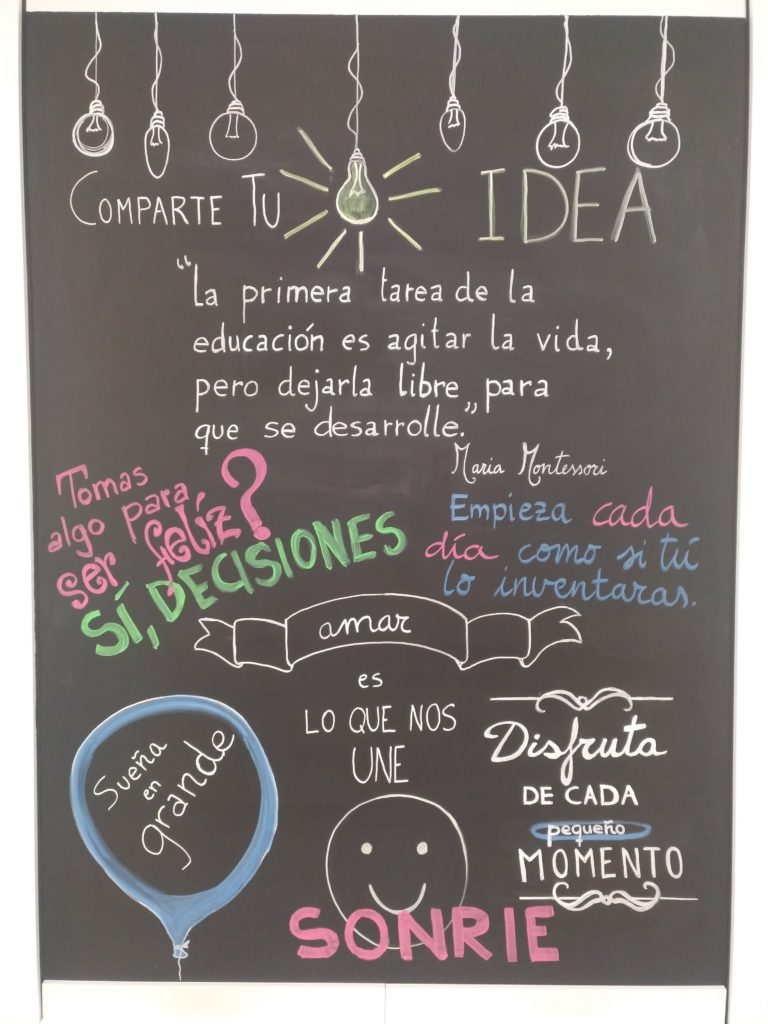 COMPARTE TU IDEA
“La primera tarea de la
educación es agitar la vida,
pero dejarla libre para
que se desarrolle.”
Maria Montessori
Tomas
algo para
ser felíz?
SÍ, DECISIONES
Empieza cada
día como si tú
lo inventaras.
amar
es
LO QUE NOS
UNE
Sueña
en
grande
Disfruta
DE CADA
pequeño
MOMENTO
SONRIE